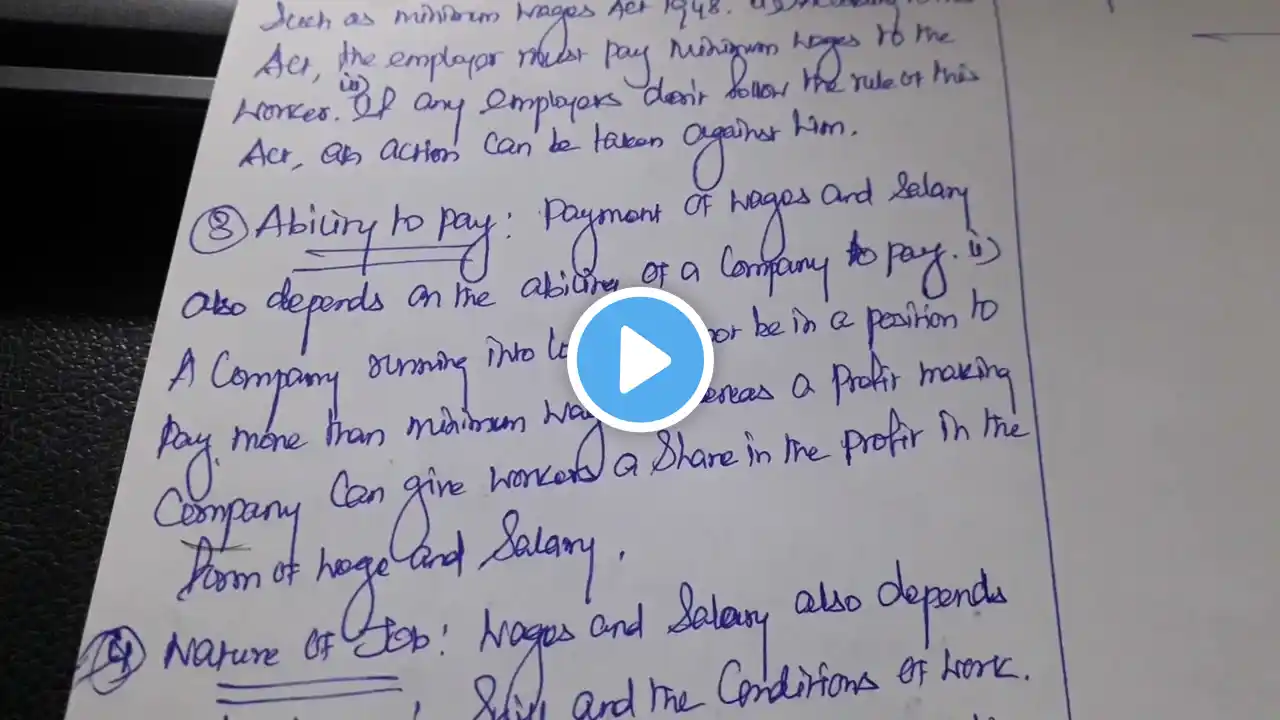 Such as minimum wages Act 1948.
Act, the employer must pay minimum wages to the
worker. iii) If any employers don't follow the rule of this
Act, an action can be taken against him.
③ Ability to pay: Payment of wages and Salary
also depends on the ability of a Company to pay. ii)
A Company running into be in a position to
Pay more than minimum a Profit making
Company Can give workers a Share in the profit in the
form of wage and Salary.
④ Nature of Job: Wages and Salary also depends
and the Conditions of work.